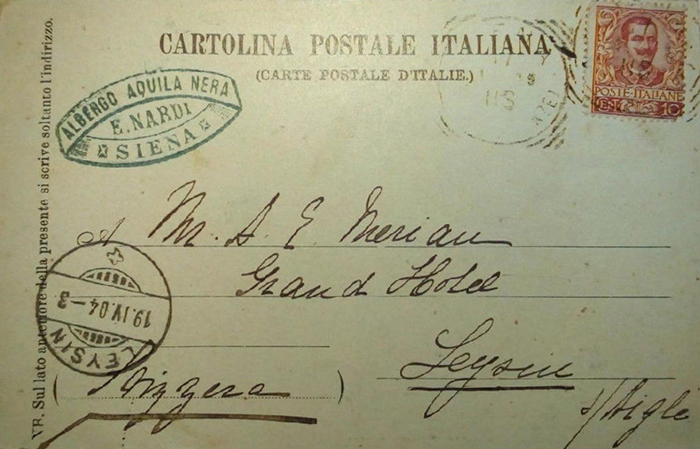 CARTOLINA POSTALE ITALIANA
(CARTE POSTALE D'ITALIE.)
POSTE ITALIANE
CENT. 10
ALBERGO AQUILA NERA
E. NARDI
SIENA
A Mr. A E Merian
Grand Hotel
Leysin
s/Aigle
(Svizzera)
LEYSIN
19.IV.04-3
VB. Sul lato anteriore della presente si scrive soltanto l'indirizzo.